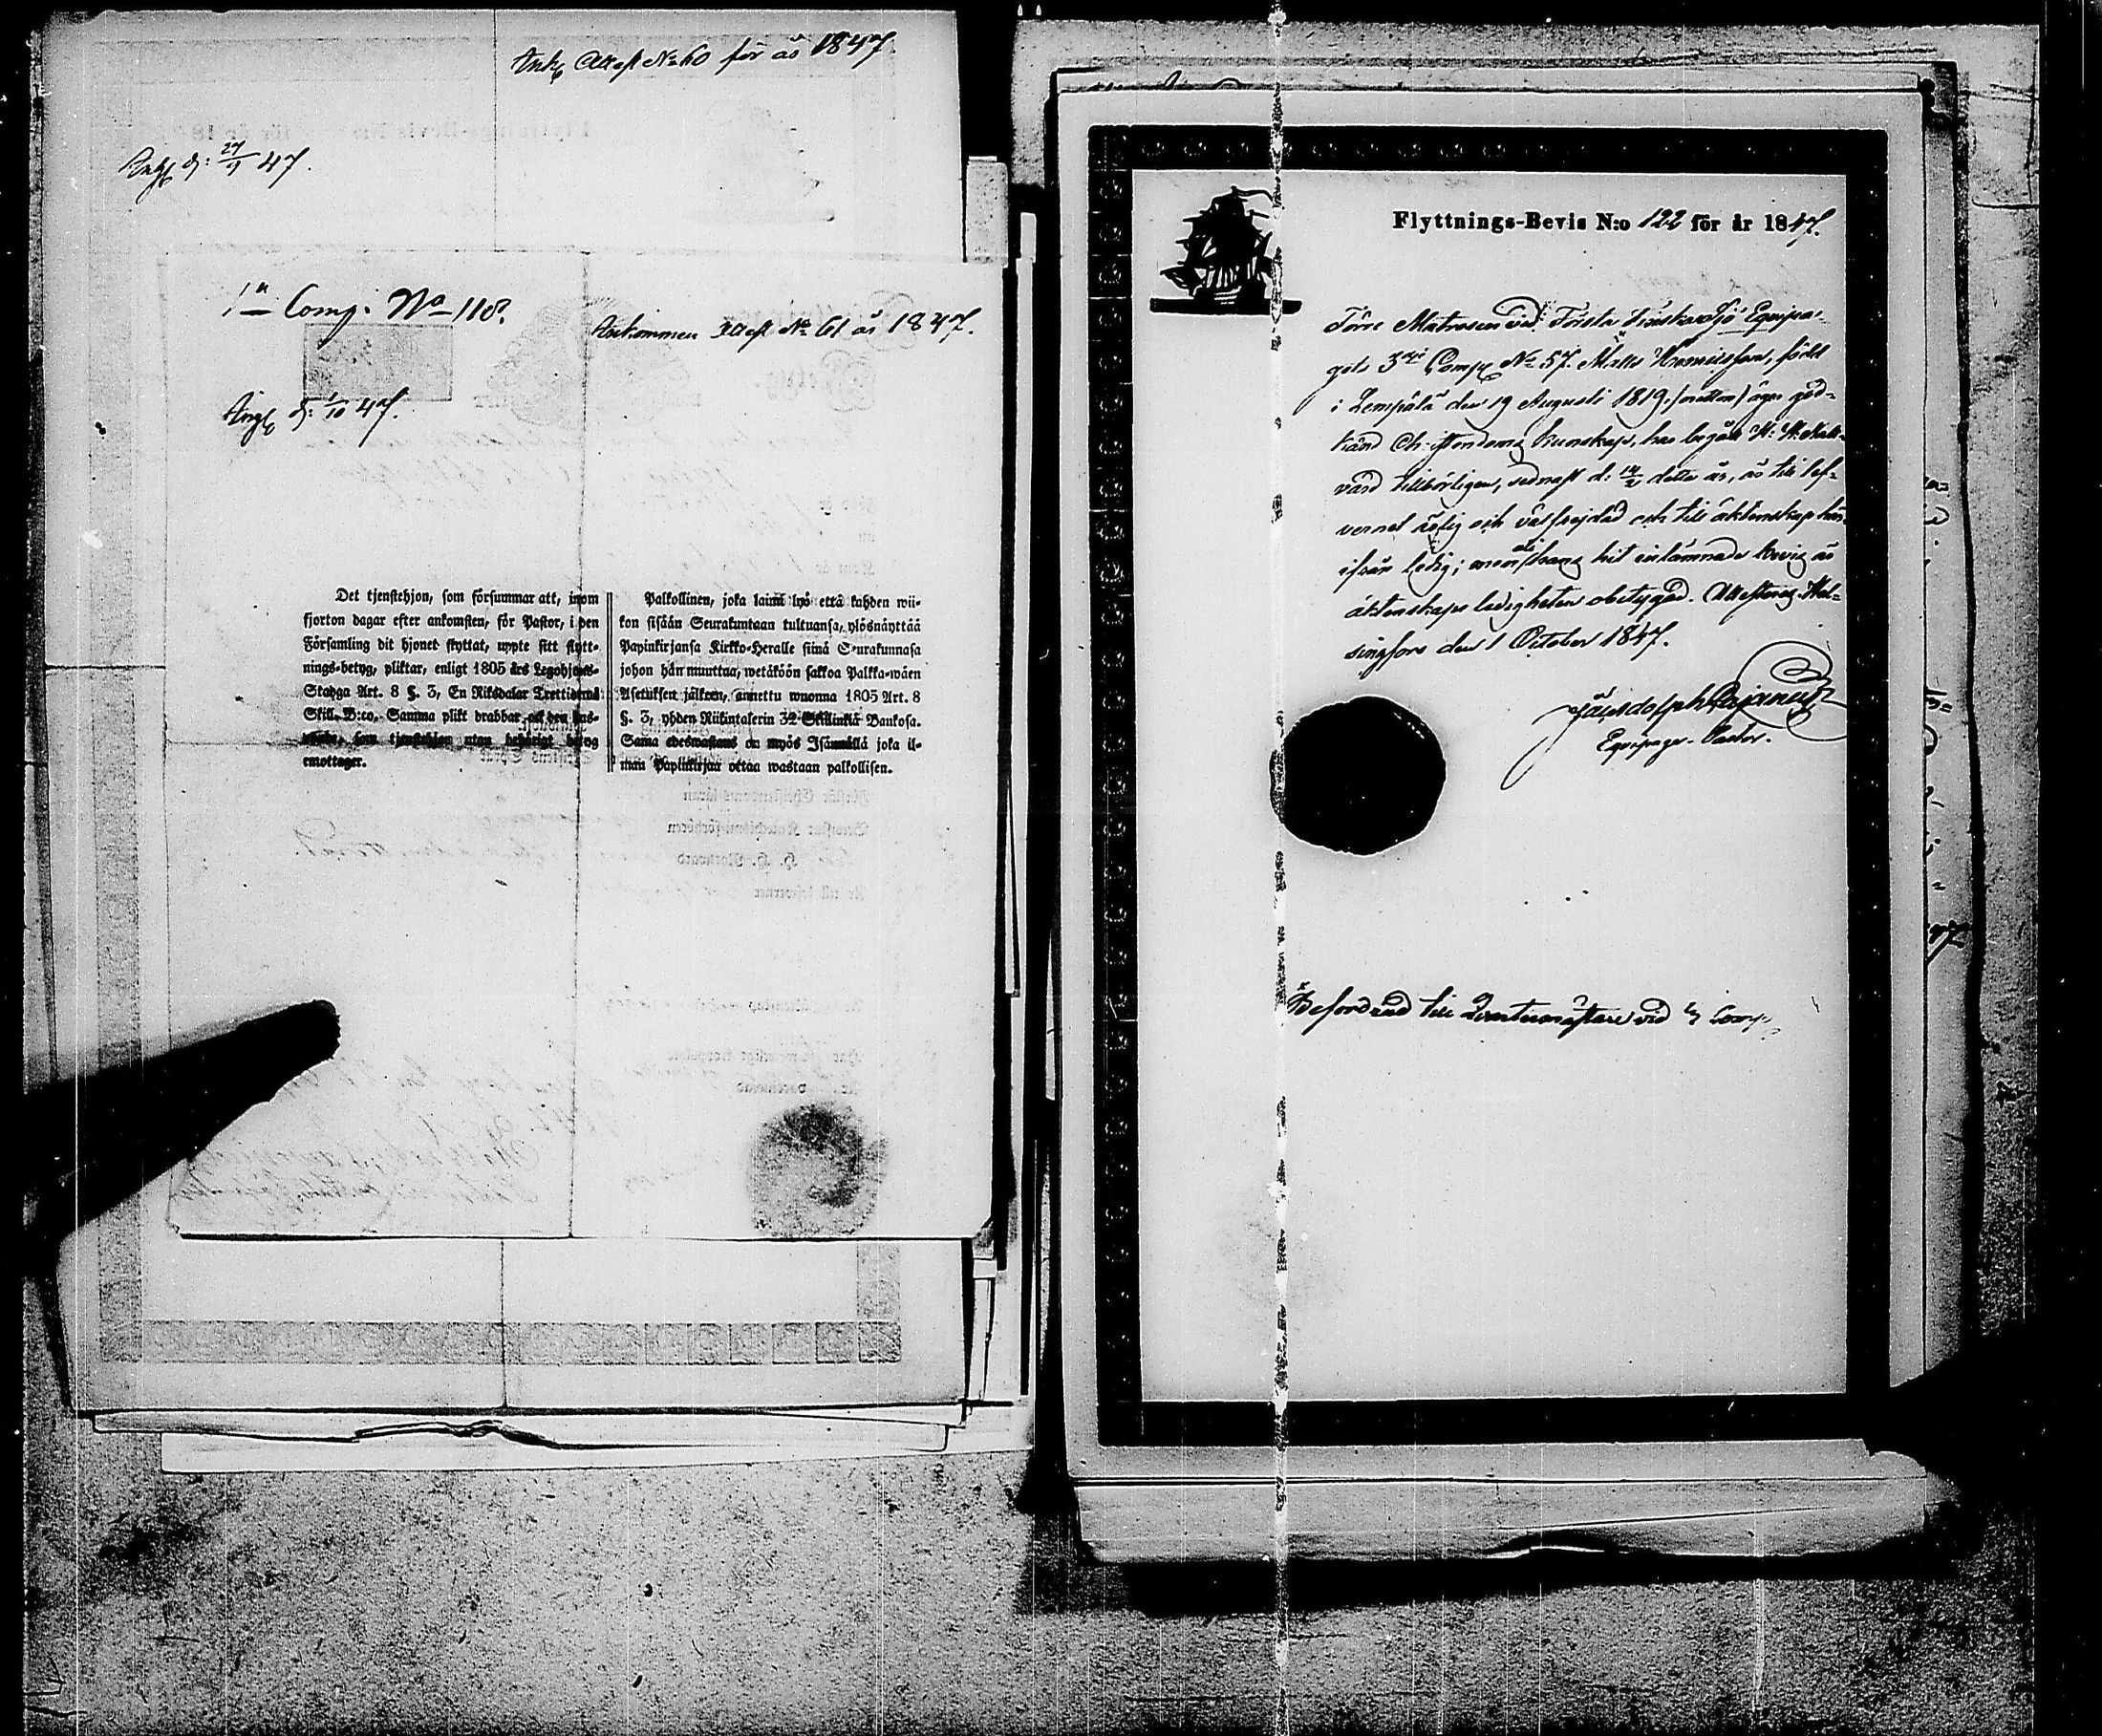 Attest No 60 för år 1847.
d: 27/9 47.
1a Comp. No 118.
Ankommen Attest No 61 år 1847.
d: 1/10 47.
Det tjenstehjon, som försummar att, inom
fjorton dagar efter ankomsten, för Pastor, i den
Församling dit hjonet flyttat, uppte sitt flytt-
nings-betyg, pliktar, enligt 1805 års Legohjons-
Stadga Art. 8 §. 3, En Riksdaler Trettiotwå
Skill. B:co. Samma plikt drabbar ock den hus-
bonde, som tjenstehjon utan behörigt betyg
emottager.
Palkollinen, joka laimi lyö että kahden wii-
kon sisään Seurakuntaan tultuansa, ylösnäyttää
Papinkirjansa Kirkko-Herralle siinä Seurakunnasa
johon hän muuttaa, wetäköön sakkoa Palkka-wäen
Asetuksen jälkeen, annettu wuonna 1805 Art. 8
§. 3, yhden Riikintalerin 32 Skillinkiä Bankosa.
Sama edeswastaus on myös Isännällä joka il-
man Papinkirjaa ottaa wastaan palkollisen.
Flyttnings-Bevis N:o 122 för år 1847.
Förre Matrosen vid Första Finska Sjö Equipa-
gets 3dje Comp No 57. Matts Henriksson, född
i Lempälä den 19 Augusti 1819 (nitton) äger god-
känd Christendoms kunskap, har begått H: H: Natt-
vard tillbörligen, sednast d: 14/2 detta år, är till lef-
vernet ärlig och välfrejdad och till äktenskap här-
ifrån ledig; men hans hit inlämnade bevis är
äktenskaps ledigheten obetygad. Attesteras Hel-
singfors den 1 October 1847.
Equipage-Pastor.
Befordrad till vid Comp.